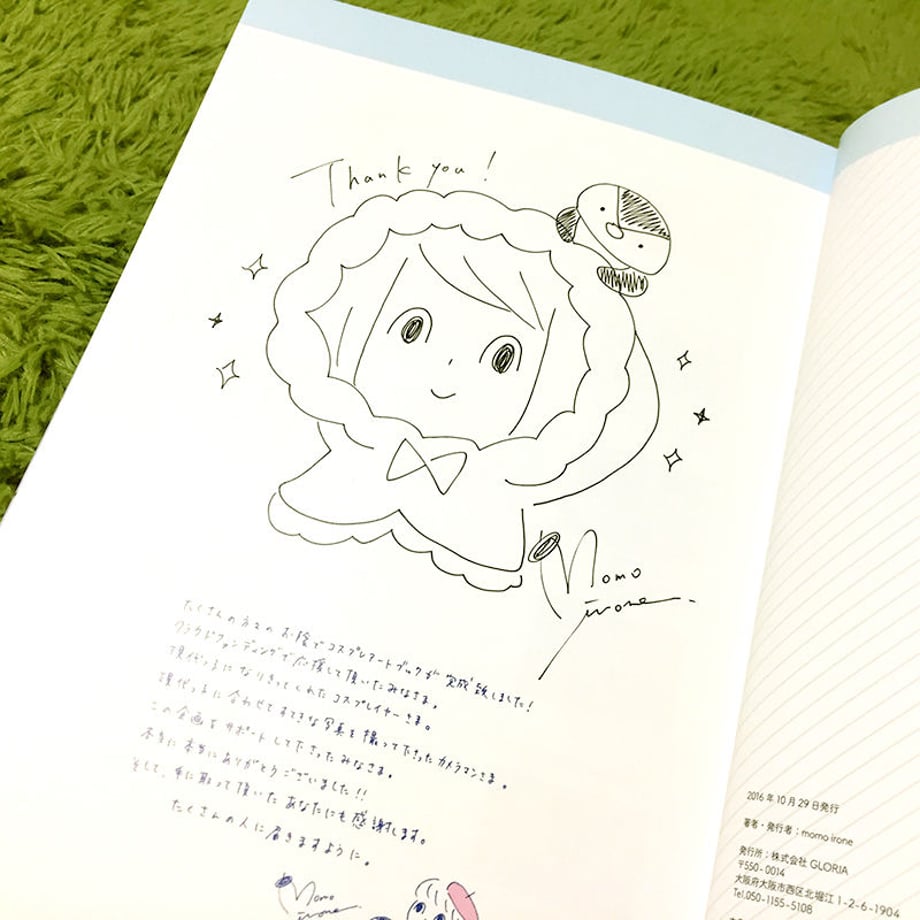 Thank you!
Momo
irone
たくさんの方々のお陰でコスプレアートブックが完成致しました!
クラウドファンディングで応援して頂いたみなさま。
現代っ子になりきってくれたコスプレイヤーさま。
現代っ子に合わせてすてきな写真を撮って下さったカメラマンさま。
この企画をサポートして下さったみなさま。
本当に本当にありがとうございました!!
そして、手に取って頂いたあなたにも感謝します。
たくさんの人に届きますように。
Momo
irone
2016年10月29日発行
著者・発行者：momo irone
発行所：株式会社 GLORIA
〒550-0014
大阪府大阪市西区北堀江 1-2-6-1904
Tel.050-1155-5108